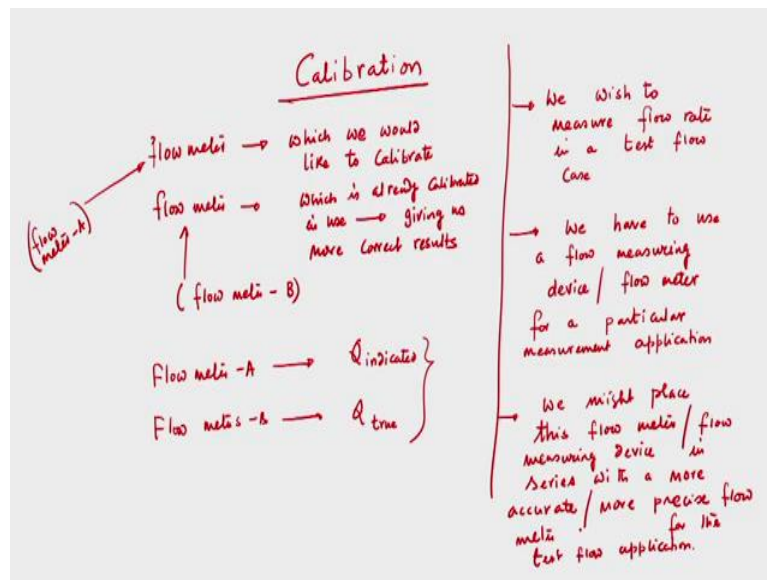 Calibration
flow meter → which we would
like to calibrate
flow meter → which is already calibrated
in use → giving us
more correct results
(flow
meter-A)
(flow meter - B)
Flow meter - A → Q indicated
Flow meter - B → Q true
→ We wish to
measure flow rate
in a test flow
case
→ We have to use
a flow measuring
device / flow meter
for a particular
measurement application
→ We might place
this flow meter / flow
measuring device in
series with a more
accurate / more precise flow
meter for the
test flow application.